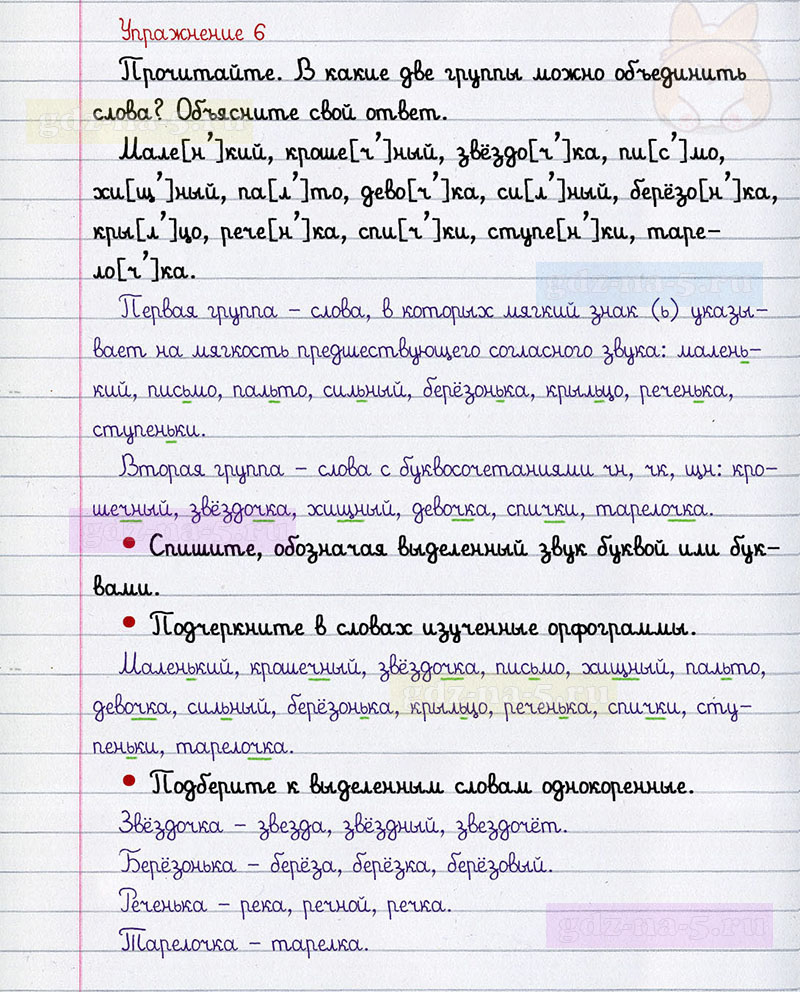 Упражнение 6
Прочитайте. В какие две группы можно объединить
слова? Объясните свой ответ.
Мале[н’]кий, кроше[ч’]ный, звёздо[ч’]ка, пи[с’]мо,
хи[щ’]ный, па[л’]то, дево[ч’]ка, си[л’]ный, берёзо[н’]ка,
кры[л’]цо, рече[н’]ка, спи[ч’]ки, ступе[н’]ки, таре-
ло[ч’]ка.
Первая группа – слова, в которых мягкий знак (ь) указы-
вает на мягкость предшествующего согласного звука: малень-
кий, письмо, пальто, сильный, берёзонька, крыльцо, реченька,
ступеньки.
Вторая группа – слова с буквосочетаниями чн, чк, щн: кро-
шечный, звёздочка, хищный, девочка, спички, тарелочка.
• Спишите, обозначая выделенный звук буквой или бук-
вами.
• Подчеркните в словах изученные орфограммы.
Маленький, крашечный, звёздочка, письмо, хищный, пальто,
девочка, сильный, берёзонька, крыльцо, реченька, спички, сту-
пеньки, тарелочка.
• Подберите к выделенным словам однокоренные.
Звёздочка – звезда, звёздный, звездочёт.
Берёзонька – берёза, берёзка, берёзовый.
Реченька – река, речной, речка.
Тарелочка – тарелка.
gdz-na-5.ru
gdz-na-5.ru
gdz-na-5.ru
gdz-na-5.ru
gdz-na-5.ru